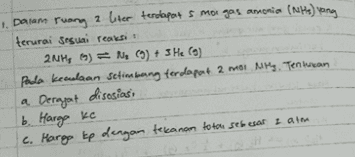 1. Dalam ruang 2 liter terdapat 5 mol gas amonia (NH₃) yang
terurai sesuai reaksi :
2NH₃ (g) ⇌ N₂ (g) + 3H₂ (g)
Pada keadaan setimbang terdapat 2 mol NH₃. Tentukan
a. Derajat disosiasi
b. Harga Kc
c. Harga Kp dengan tekanan total sebesar 2 atm